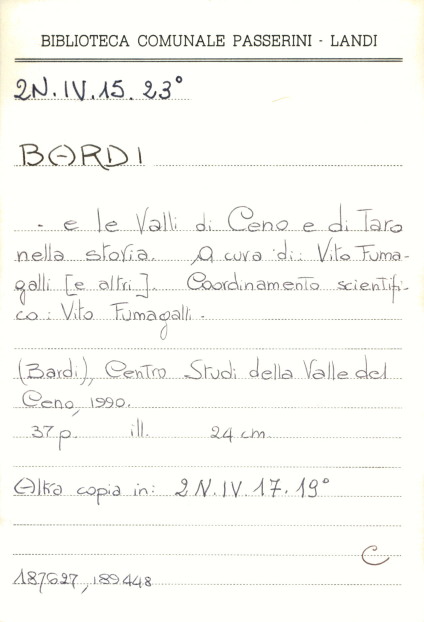 BIBLIOTECA COMUNALE PASSERINI - LANDI
2N.IV.15.23°
BARDI
- e le Valli di Ceno e di Taro
nella storia. A cura di: Vito Fuma-
galli [e altri]. Coordinamento scientifi-
co: Vito Fumagalli.
(Bardi), Centro Studi della Valle del
Ceno, 1990.
37 p. ill. 24 cm.
Altra copia in: 2N.IV.17.19°
C
187627, 189448